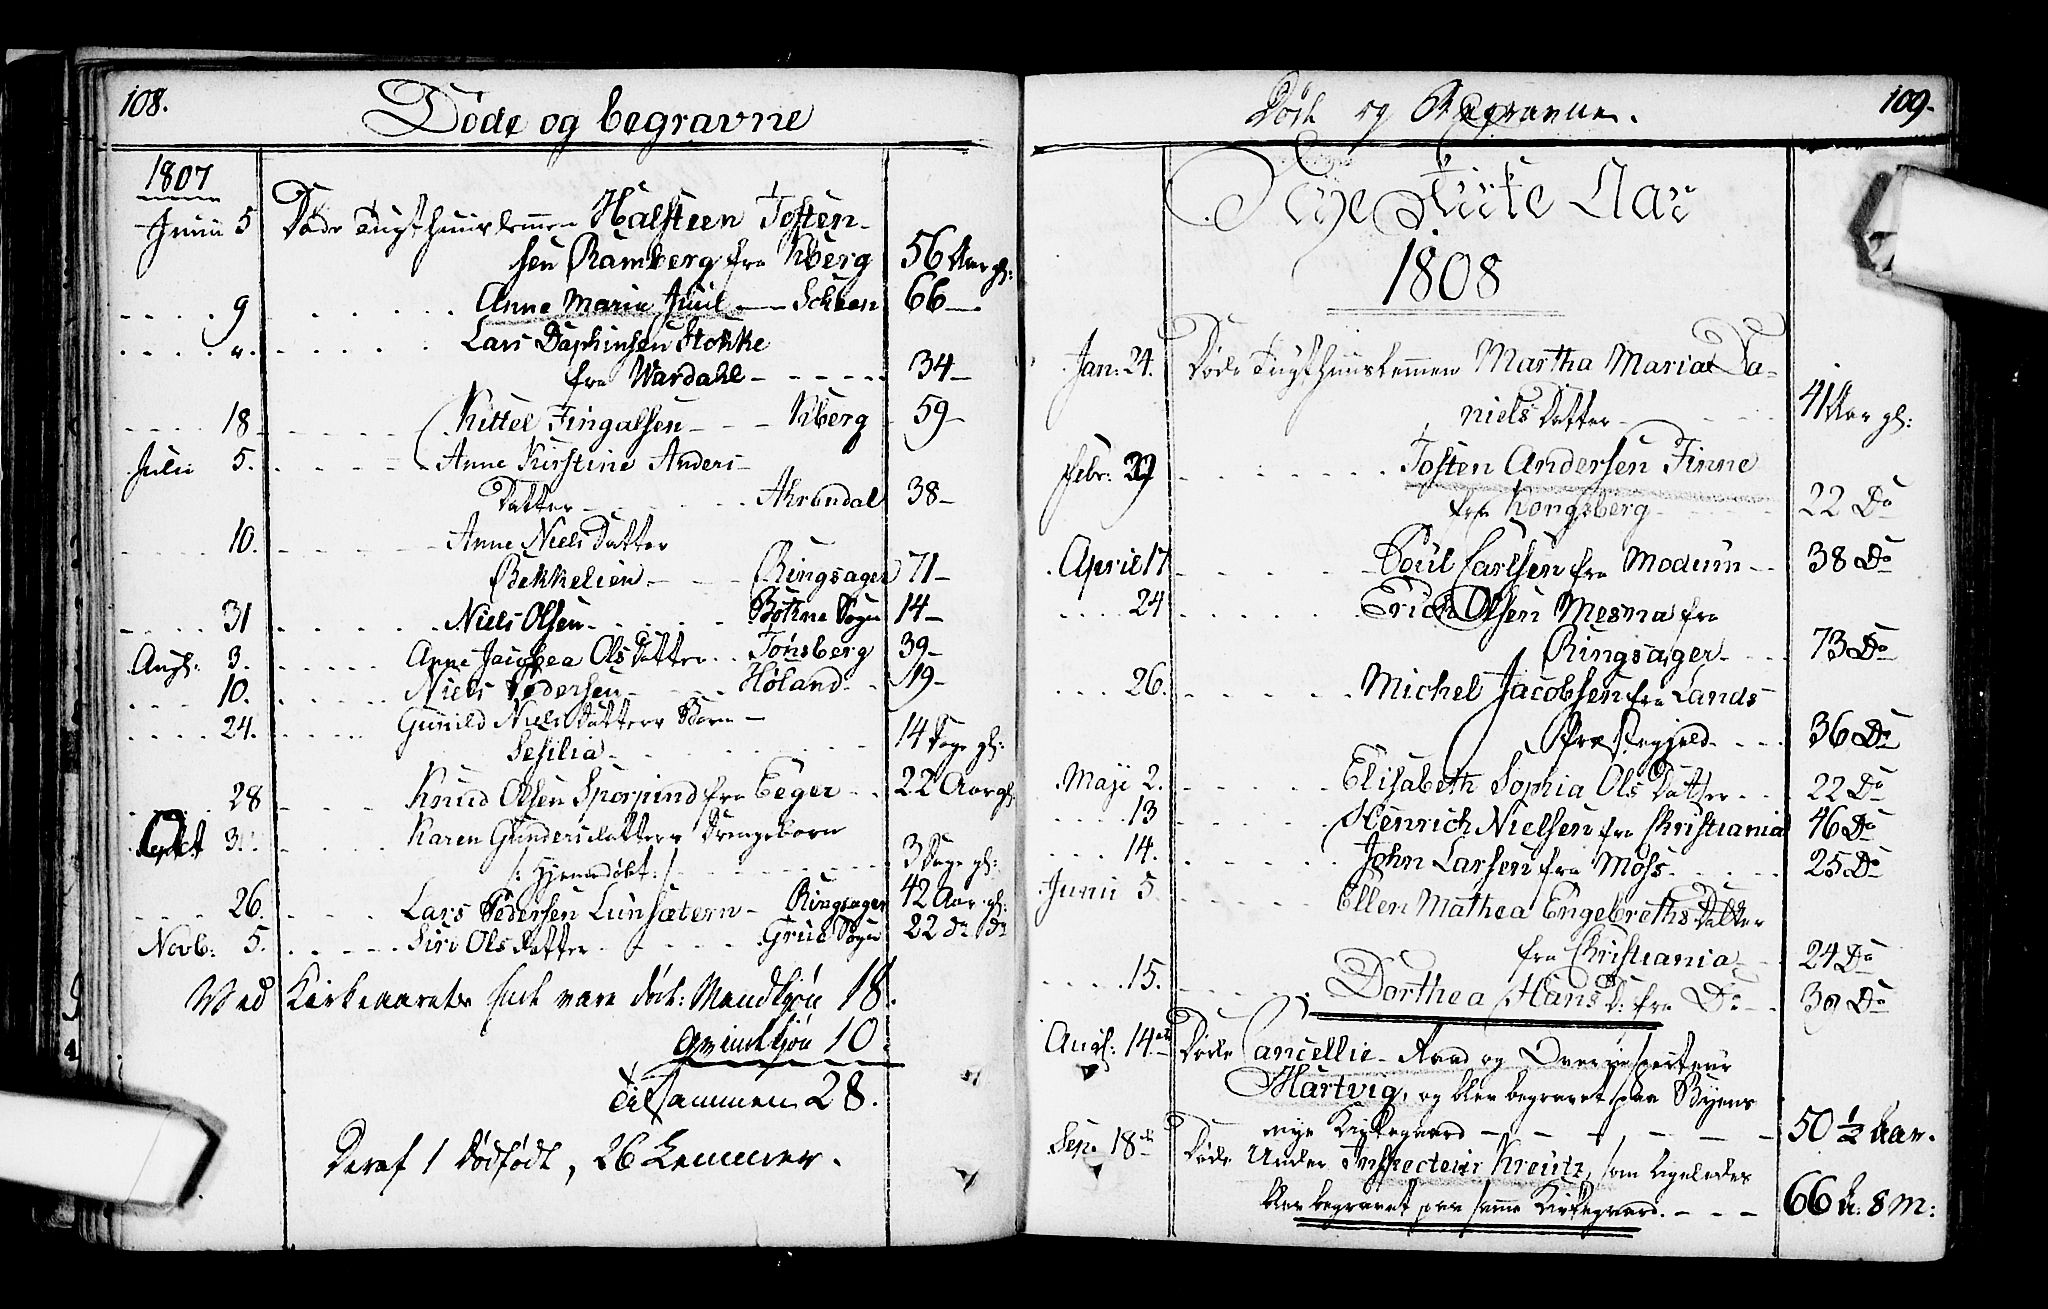 108.
Døde og begravne
1807
Junii 5 Døde Tugthuuslemmen Halsteen Tosten-
sen Ramberg fra Kberg 56 Aar gl:
9 Anne Maria Juul Scheen 66
Lars Stokke
fra Wardahl 34
18 Kittel Fingalsen Kberg 59
Julii 5. Anne Kirstine Anders-
Datter Ahrendal 38
10. Anne Niels Datter
Bekkelien Ringsager 71
31 Niels Olsen Bothne Sogn 14
Aug: 3. Anne Jacobea Ols Datter Tønsberg 39
10. Niels Pedersen Høland 19
24. Gunild Niels Datters Barn
Sesilia 14 Dage gl:
28 Knud Olsen fra Eeger 22 Aar gl:
Karen Gundersdatters Drengebarn
/: Hjemmedøbt :/ 3 Dage gl:
26. Lars Pedersen Lunsætern Ringsager 42 Aar gl:
Novb: 5. Siri Ols Datter Grue Sogn 22 Do Do
Ved Kirkeaarets Ende vare døde: Mandkjøn 18.
Qvindkjøn 10
Tilsammen 28.
Deraf 1 Dødfødt, 26 Lemmer.
109.
Døde og Begravne.
Nye Kirke Aar
1808
Jan: 24. Døde Tugthuuslemmen Martha Maria Da-
niels Datter 41 Aar gl:
Febr: Tosten Andersen Finne
fra Kongsberg 22 Do
April 17 Poul Carlsen fra Modum 38 Do
24 Erich Olsen Mesna fra
Ringsager 73 Do
26. Michel Jacobsen fra Lands
Præstegjeld 36 Do
Maji 2. Elisabeth Sophia Ols Datter 22 Do
13 Henrich Nielsen fra Christiania 46 Do
14. John Larsen fra Moss 25 Do
Junii 5. Ellen Mathea Engebreths Datter
fra Christiania 24 Do
15. Dorthea Hans D: fra Do 39 Do
Aug: 14de Døde Cancellie-Raad og Overinspecteur
Hartvig, og blev begravet paa Byens
nye Kirkegaard 50 1/2 Aar.
Sep. 18de Døde Under Inspecteur Kreutz, som ligeledes
blev begravet paa samme Kirkegaard. 66 A: 8 M: